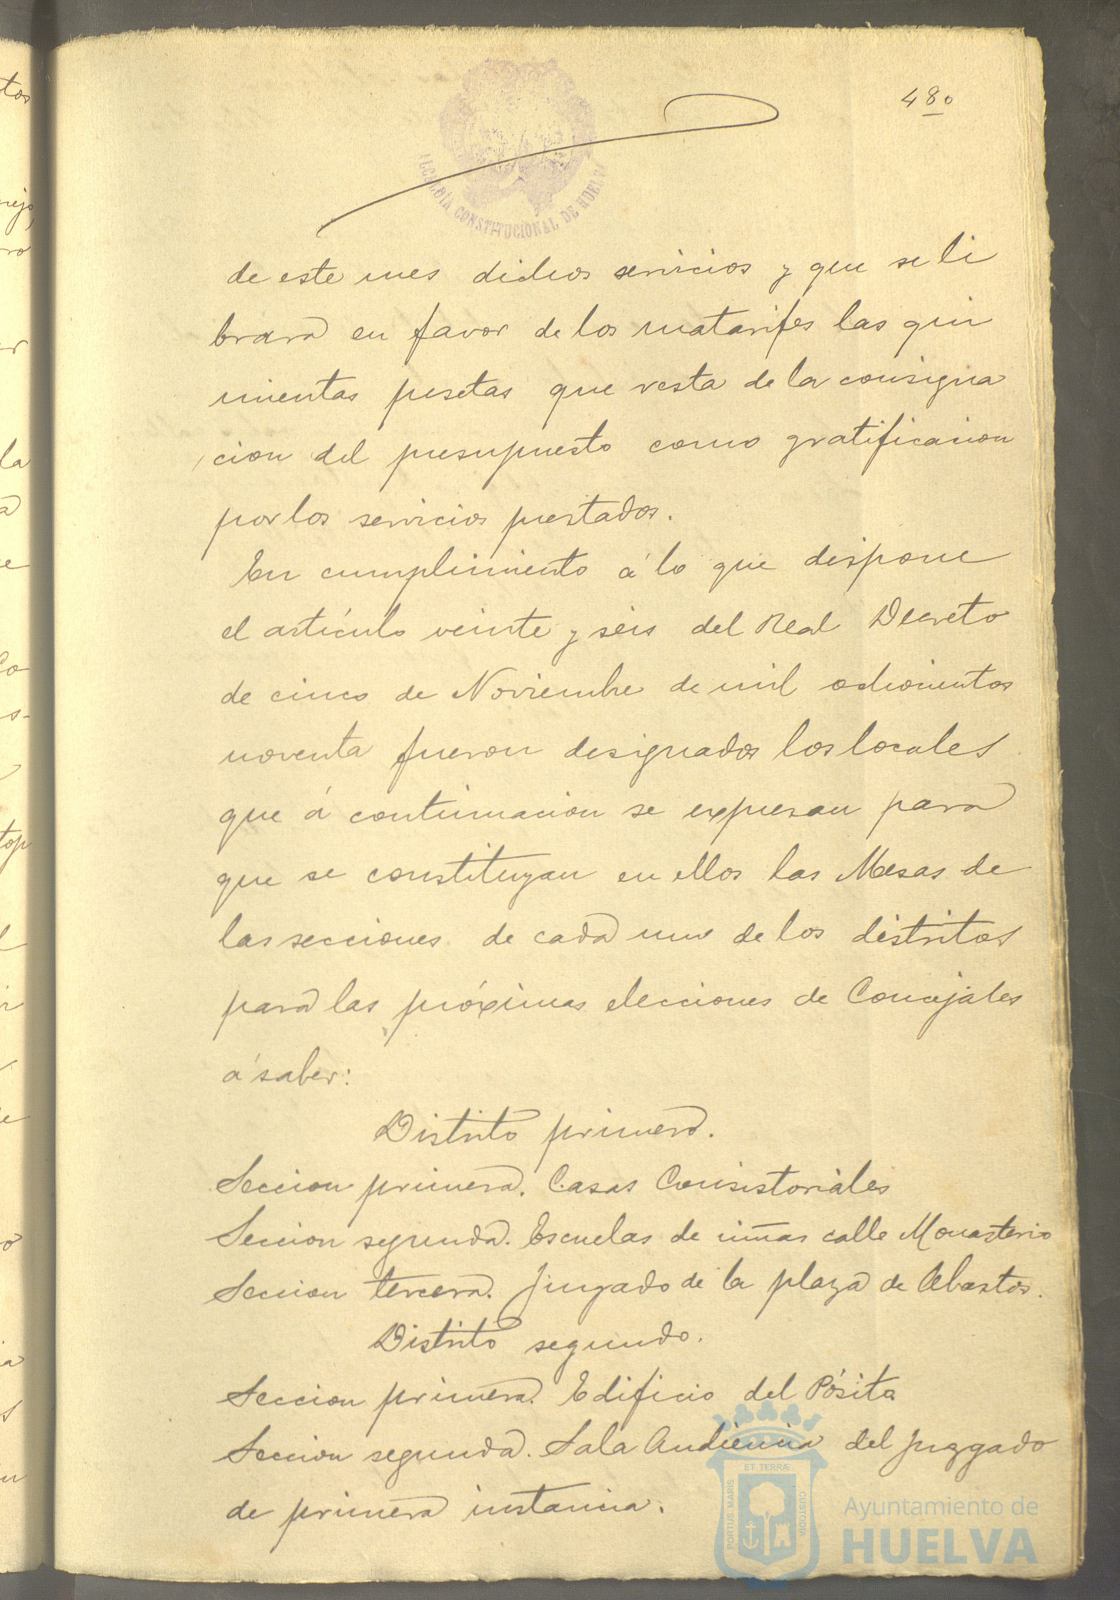 480
ALCALDÍA CONSTITUCIONAL DE HUELVA
de este mes dichos servicios y que se li
brara en favor de los matarifes las qui
nientas pesetas que resta de la consigna
cion del presupuesto como gratificacion
por los servicios prestados.
En cumplimiento á lo que dispone
el artículo veinte y seis del Real Decreto
de cinco de Noviembre de mil ochocientos
noventa fueron designados los locales
que á continuacion se expresan para
que se constituyan en ellos las Mesas de
las secciones de cada uno de los distritos
para las próximas elecciones de Concejales
á saber:
Distrito primero.
Seccion primera. Casas Consistoriales
Seccion segunda. Escuelas de niñas calle Monasterio
Seccion tercera. Juzgado de la plaza de Abastos.
Distrito segundo.
Seccion primera. Edificio del Pósito
Seccion segunda. Sala Audiencia del Juzgado
de primera instancia.
PORTUS MARIS ET TERRÆ CUSTODIA
Ayuntamiento de
HUELVA